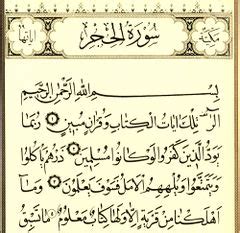 مكية سورة الحجر آياتها
بسم الله الرحمن الرحيم
الر تلك آيات الكتاب وقرآن مبين ربما
يود الذين كفروا لو كانوا مسلمين ذرهم يأكلوا
ويتمتعوا ويلههم الأمل فسوف يعلمون وما
أهلكنا من قرية إلا ولها كتاب معلوم ما تسبق